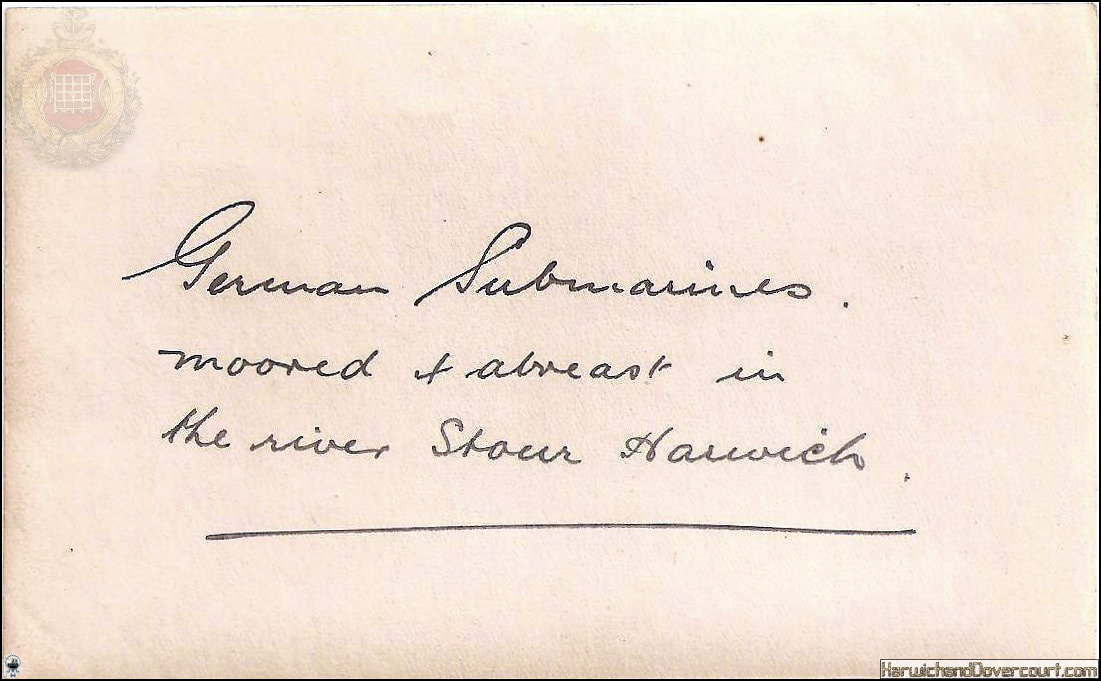 German Submarines.
moored & abreast in
the river Stour Harwich.
HarwichandDovercourt.com